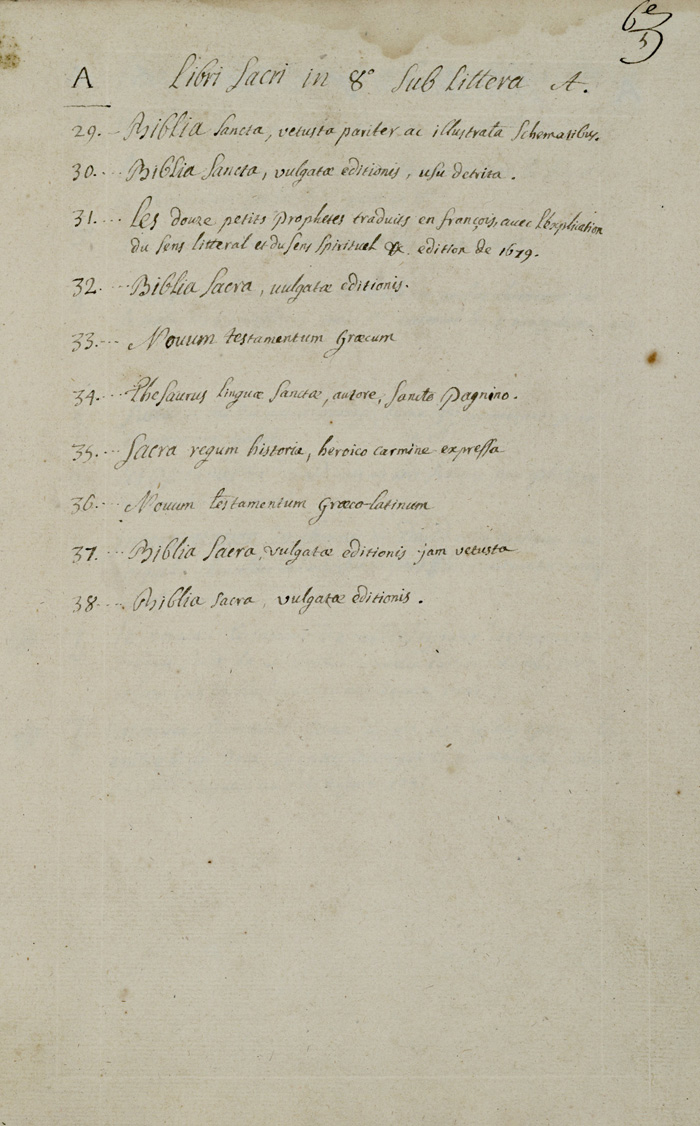 6e
5
A Libri Sacri in 8° Sub Littera A.
29. – Biblia Sancta, vetusta pariter ac illustrata Schematibus.
30.... Biblia Sancta, vulgatæ editionis, usu detrita.
31.... Les douze petits Prophetes traduits en françois, avec l'explication
du sens litteral et du sens Spirituel &c. edition de 1679.
32.... Biblia Sacra, vulgatæ editionis.
33.... Novum testamentum Græcum
34.... Thesaurus linguæ Sanctæ, autore, Sancte Pagnino.
35.... Sacra regum historia, heroico carmine expressa
36.... Novum testamentum Græco-latinum
37. ... Biblia Sacra, vulgatæ editionis jam vetusta
38.... Biblia Sacra, vulgatæ editionis.